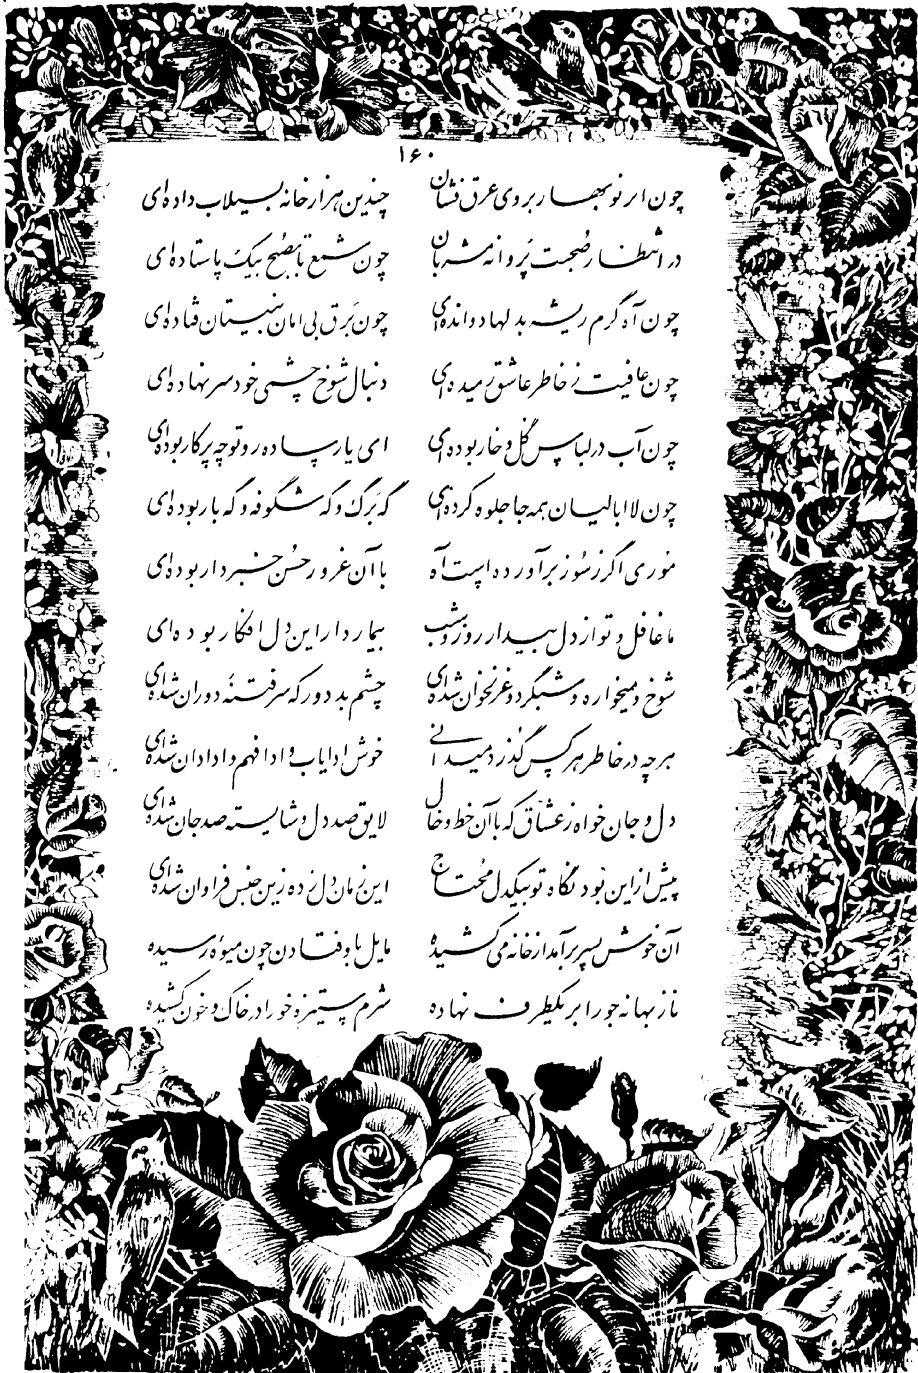 ۱۶۰
چون ابر نوبهار بروی عرق فشان چندین هزار خانه بسیلاب داده‌ای
در انتظار صحبت پروانه مشربان چون شمع تا بصبح بیک پا ستاده‌ای
چون آه گرم ریشه بدلها دوانده‌ای چون برق بی امان نیستان فتاده‌ای
چون عافیت ز خاطر عاشق رمیده‌ای دنبال شوخ چشمی خود سر نهاده‌ای
چون آب در لباس گل و خار بوده‌ای ای یار ساده رو تو چه پرکار بوده‌ای
چون لاابالیان همه جا جلوه کرده‌ای گه برگ و گه شکوفه و گه بار بوده‌ای
موری اگر ز سوز برآورده است آه با آن غرور حسن خبردار بوده‌ای
ما غافل و تو از دل بیدار روز و شب بیماردار این دل افکار بوده‌ای
شوخ و میخواره و شبگرد و غزلخوان شده‌ای چشم بد دور که سرفتنهٔ دوران شده‌ای
هر چه در خاطر هر کس گذرد میدانی خوش ادایاب و ادا فهم و ادادان شده‌ای
دل و جان خواه ز عشاق که با آن خط و خال لایق صد دل و شایسته صد جان شده‌ای
پیش از این بود نگاه تو بیکدل محتاج این زمان دل زده زین جنس فراوان شده‌ای
آن خوش پسر برآمد از خانه می کشیده مایل باوفتادن چون میوهٔ رسیده
ناز بهانه جو را بر یکطرف نهاده شرم ستیزه خو را در خاک و خون کشیده